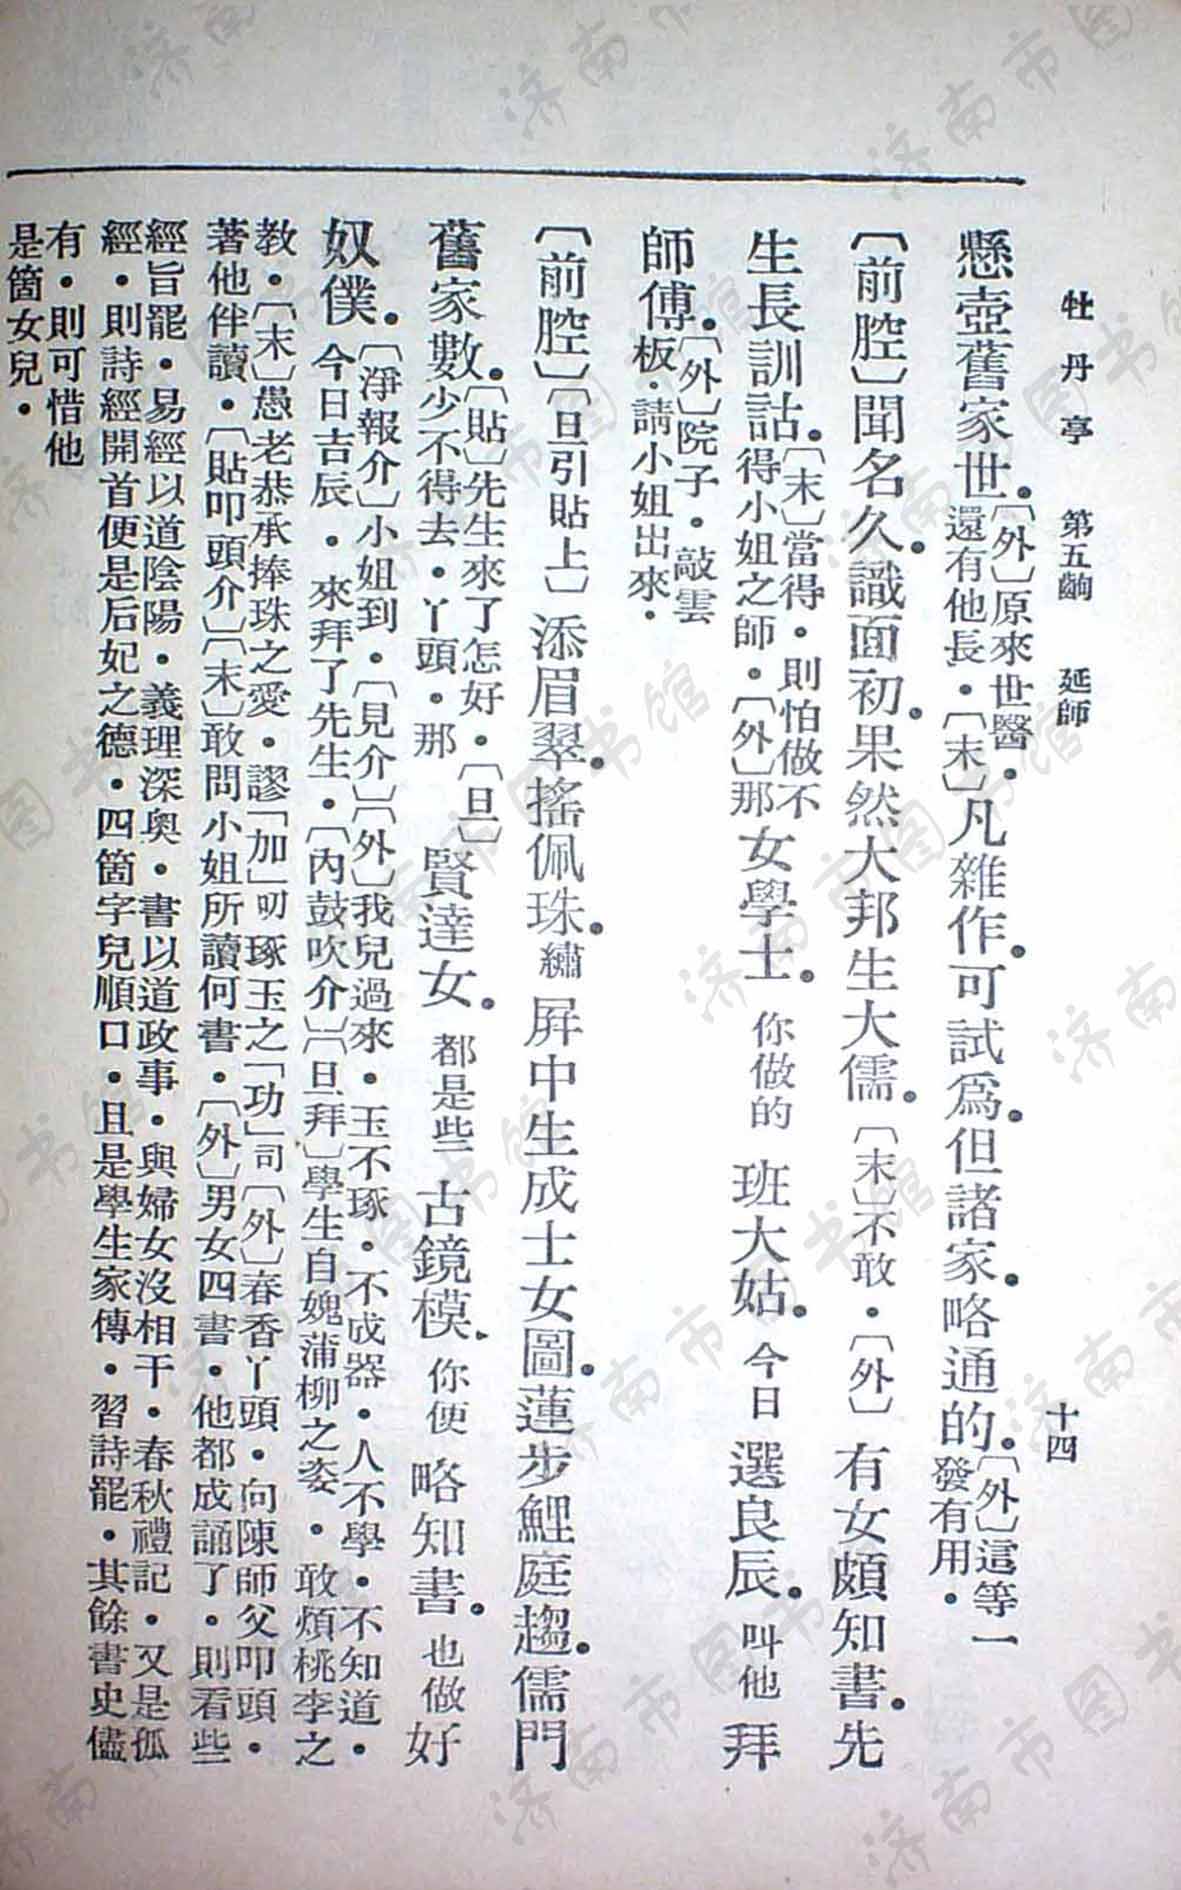 牡丹亭 第五齣 延師 十四
懸壺舊家世．〔外〕原來世醫．還有他長．〔末〕凡雜作．可試爲．但諸家．略通的．〔外〕這等一發有用．
〔前腔〕聞名久．識面初．果然大邦生大儒．〔末〕不敢．〔外〕有女頗知書．先
生長訓詁．〔末〕當得．則怕做不得小姐之師．〔外〕那女學士．你做的班大姑．今日選良辰．叫他拜
師傅．〔外〕院子．敲雲板．請小姐出來．
〔前腔〕〔旦引貼上〕添眉翠．搖佩珠．繡屏中生成士女圖．蓮步鯉庭趨．儒門
舊家數．〔貼〕先生來了怎好．〔旦〕少不得去．丫頭．那賢達女．都是些古鏡模．你便略知書．也做好
奴僕．〔淨報介〕小姐到．〔見介〕〔外〕我兒過來．玉不琢．不成器．人不學．不知道．
今日吉辰．來拜了先生．〔內鼓吹介〕〔旦拜〕學生自媿蒲柳之姿．敢煩桃李之
教．〔末〕愚老恭承捧珠之愛．謬「加」叨琢玉之「功」司〔外〕春香丫頭．向陳師父叩頭．
著他伴讀．〔貼叩頭介〕〔末〕敢問小姐所讀何書．〔外〕男女四書．他都成誦了．則看些
經旨罷．易經以道陰陽．義理深奧．書以道政事．與婦女沒相干．春秋禮記．又是孤
經．則詩經開首便是后妃之德．四箇字兒順口．且是學生家傳．習詩罷．其餘書史儘
有．則可惜他
是箇女兒．
济南市图书馆